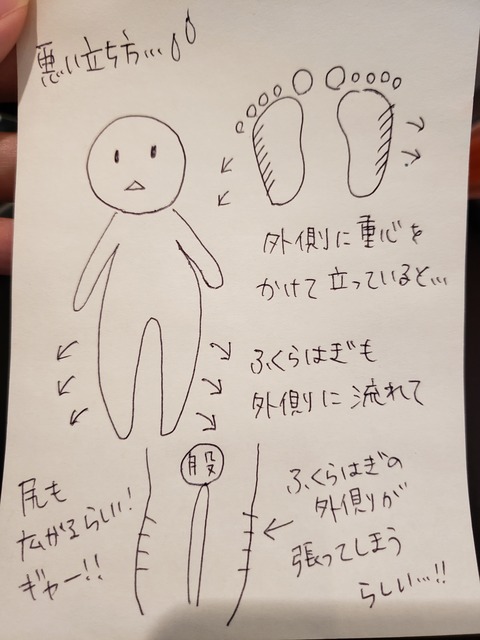 悪い立ち方…
外側に重心を
かけて立っていると…
ふくらはぎも
外側に流れて
股
尻も
広がるらしい!
ギャー!!
ふくらはぎの
外側が
張ってしまう
らしい…!!